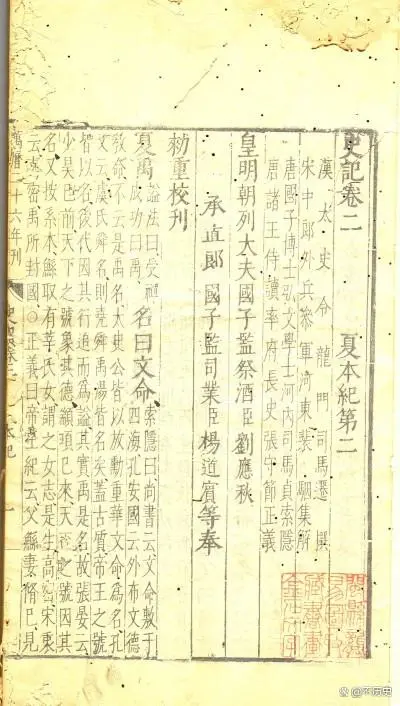 史記卷二 夏本紀第二
漢太史令龍門司馬遷撰
宋中郎外兵參軍河東裴駰集解
唐國子博士弘文學士河內司馬貞索隱
唐諸王侍讀率府長史張守節正義
皇明朝列大夫國子監祭酒臣劉應秋
承直郎國子監司業臣楊道賓等奉
勑重校刊
夏禹 謚法曰受禪成功曰禹 名曰文命 索隱曰尚書云文命敷于四海孔安國云外布文德
教命不云是禹名太史公皆以放勳重華文命為名孔
文云虞氏舜名則堯舜禹湯皆名矣蓋古質帝王之號
皆以名後代因其行追而為謚其實禹是名故張晏云
少昊已前天下之號象其德顓頊已來天下之號因其
名又按系本鯀取有莘氏女謂之女志是生高密宋衷
云高密禹所封國○正義曰帝王紀云父鯀妻脩已見
萬曆二十六年刊
藏書畫
金石文字